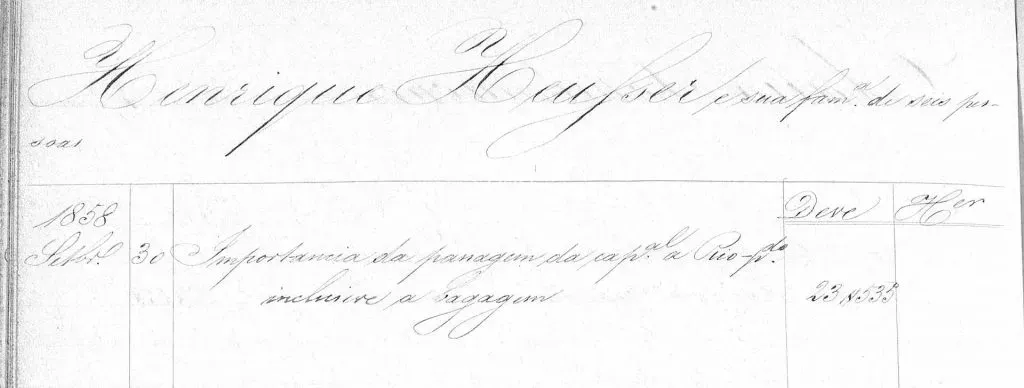 Henrique Heusser e sua fam.ª de seis pes-
soas
Deve Her
1858
Setbr.º 30 Importancia da passagem da cap.al a Rio-p.do
incluzive a bagagem 23$535